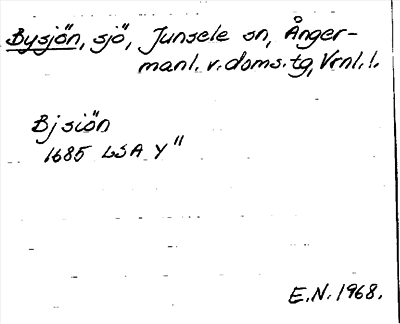 Bysjön, sjö, Junsele sn, Ånger-
manl. v. doms. tg, Vrnl. l.
Bjsiön
1685 LSA Y"
E.N. 1968.